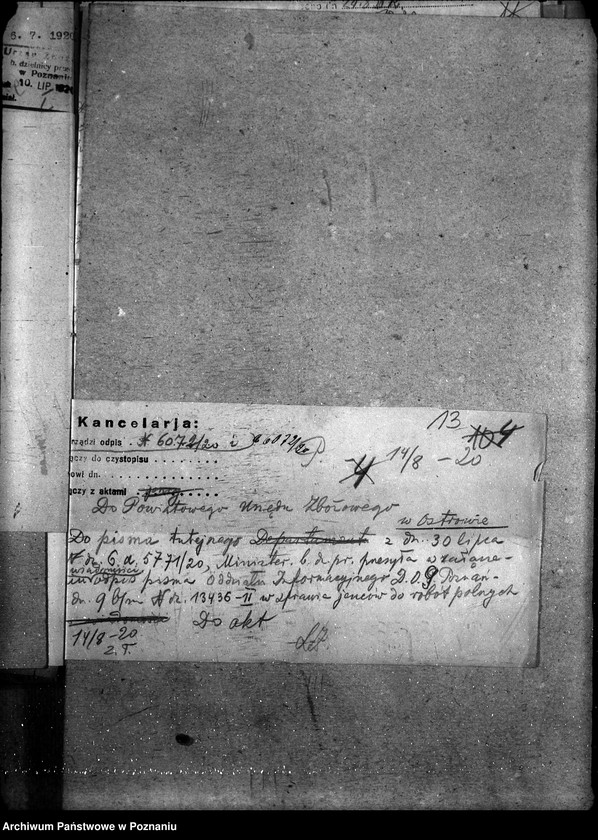 6. 7. 1920
b. dzielnicy prus
w Poznaniu
10. LIP. 1920
Kancelarja:
rządzi odpis N 6072/20 i 6072/20
ączy do czystopisu
owi dn.
ączy z aktami
13
14/8 -20
Do Powiatowego Urzędu Zbożowego
w Ostrowie
Do pisma tutejszego Departament z dn. 30 lipca
N dz. G. a. 5771/20, Minister. b. dz. pr. przesyła w załącze-
wiadomości
niu odpis pisma Oddziału Informacyjnego D.O.G. Poznań-
dn. 9 b/m N dz. 13436-II w sprawie jeńców do robót polnych
14/8 -20
Z. T.
Do akt
Archiwum Państwowe w Poznaniu